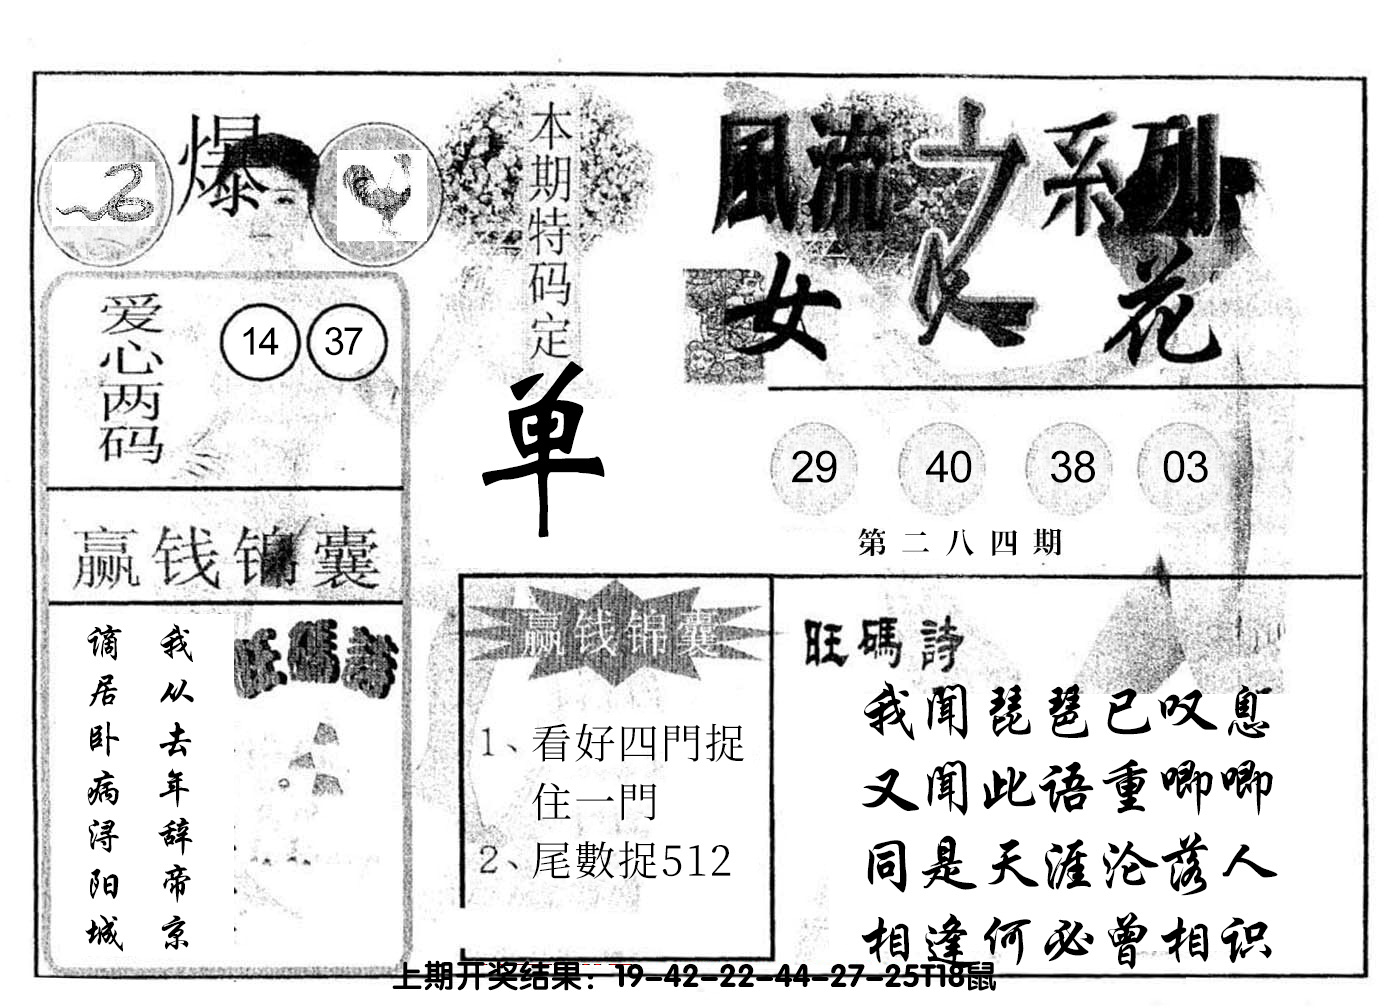 爆
本期特码定
单
風流之系列
女人花
爱心两码
14 37
29 40 38 03
第二八四期
赢钱锦囊
旺碼詩
我从去年辞帝京
谪居卧病浔阳城
赢钱锦囊
1、看好四門捉
住一門
2、尾數捉512
旺碼詩
我聞琵琶已叹息
又聞此语重唧唧
同是天涯沦落人
相逢何必曾相识
上期开奖结果：19-42-22-44-27-25T18鼠